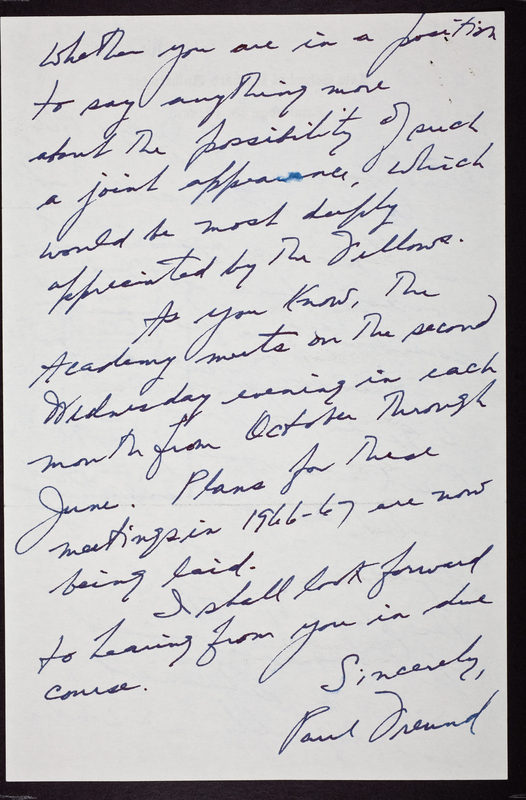 whether you are in a position
to say anything more
about the possibility of such
a joint appearance, which
would be most deeply
appreciated by the Fellows.
As you know, the
Academy meets on the second
Wednesday evening in each
month from October through
June. Plans for these
meetings in 1966-67 are now
being laid.
I shall look forward
to hearing from you in due
course.
Sincerely,
Paul Freund